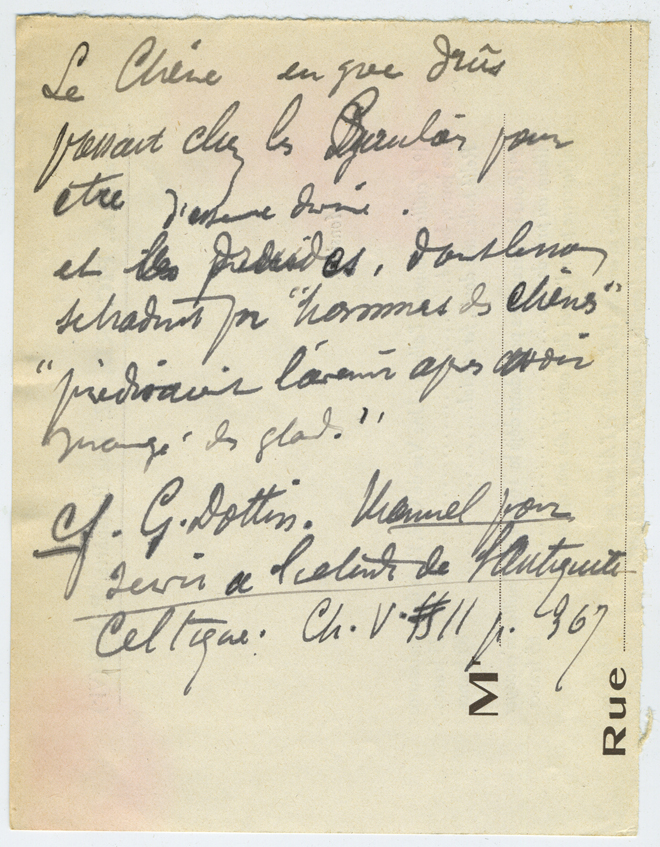 Le Chêne en grec drûs
passait chez les Gaulois pour
être d'essence divine.
et les druides, dont le nom
se traduit par "hommes des chênes"
"prédisaient l'avenir après avoir
mangé des glands."
cf. G. Dottin. Manuel pour
servir à l'étude de l'Antiquité
Celtique. Ch. V. § II p. 367
M.
Rue